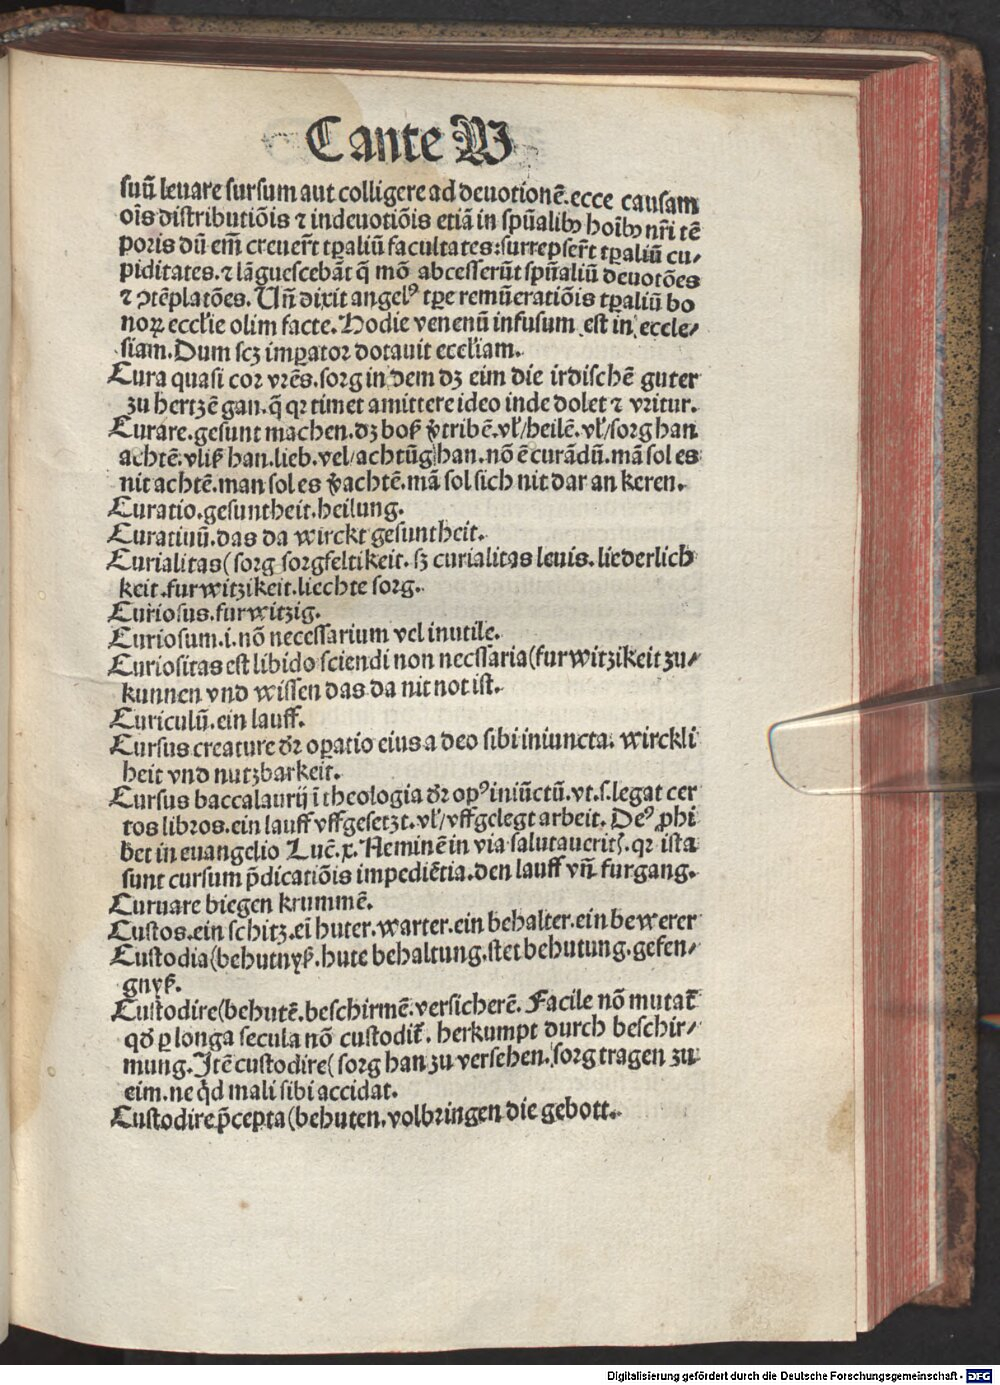 C ante W
suū leuare sursum aut colligere ad deuotionē. ecce causam
oīs distributiōis ⁊ indeuotiōis etiā in spūalibꝰ hoībꝰ nr̄i tē
poris dū em̄ creuer̄t tꝑaliū facultates: surrepser̄t tꝑaliū cu⸗
piditates. ⁊ lāguescebāt q̄ mō abcesserūt spūaliū deuotōes
⁊ ꝯtēplatōes. Un̄ dixit angelꝰ tꝑe remūeratiōis tꝑaliū bo
noꝝ eccl'ie olim facte. Hodie venenū infusum est in eccle⸗
siam. Dum scꝫ imꝑator dotauit eccl'iam.
Cura quasi cor vrēs. sorg in dem dꝫ eim die irdischē guter
zu hertzē gan. q̄ qꝛ timet amittere ideo inde dolet ⁊ vritur.
Curare. gesunt machen. dꝫ boß v̄tribē. vl'/heilē. vl'/sorg han
achtē. vliß han. lieb. vel/achtūg han. nō ē curādū. mā sol es
nit achtē. man sol es v̄achtē. mā sol sich nit dar an keren.
Curatio. gesuntheit. heilung.
Curatiuū. das da wirckt gesuntheit.
Curialitas( sorg sorgfeltikeit. sꝫ curialitas leuis. liederlich
keit. furwitzikeit. liechte sorg.
Curiosus. furwitzig.
Curiosum .i. nō necessarium vel inutile.
Curiositas est libido sciendi non necssaria( furwitzikeit zu⸗
kunnen vnd wissen das da nit not ist.
Curiculū. ein lauff.
Cursus creature dr̄ oꝑatio eius a deo sibi iniuncta. wirckli
heit vnd nutzbarkeit.
Cursus baccalaurij ī theologia dr̄ opꝰ iniūctū. vt. s. legat cer
tos libros. ein lauff vffgesetzt. vl'/vffgelegt arbeit. Deꝰ ꝓhi
bet in euangelio Luc̄. x. Neminē in via salutaueritꝭ. qꝛ ista
sunt cursum p̄dicatiōis impediētia. den lauff vn̄ furgang.
Curuare biegen krummē.
Custos. ein schitz. eī huter. warter. ein behalter. ein bewerer
Custodia( behutnyß. hute behaltung. stet behutung. gefen⸗
gnyß.
Custodire( behutē. beschirmē. versicherē. Facile nō mutat̄
qd̄ ꝑ longa secula nō custodit̄. herkumpt durch beschir⸗
mung. Jtē custodire( sorg han zu versehen. sorg tragen zu
eim. ne qd̄ mali sibi accidat.
Custodire p̄cepta( behuten. volbringen die gebott.
Digitalisierung gefördert durch die Deutsche Forschungsgemeinschaft - DFG